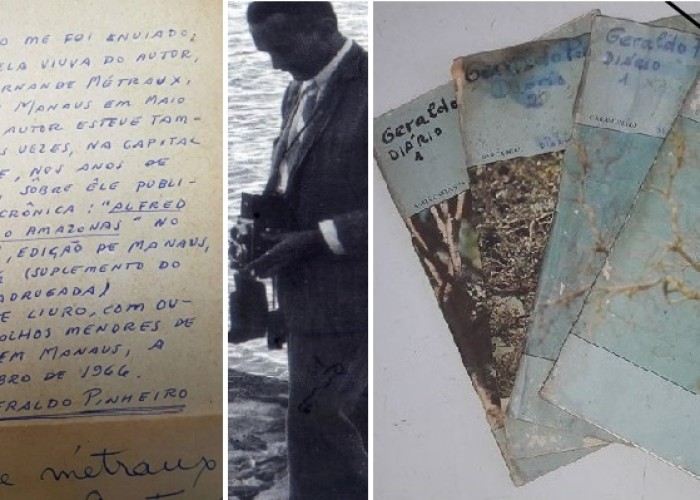 O ME FOI ENVIADO,
ELA VIUVA DO AUTOR,
ERNANDE MÉTRAUX,
MANAUS EM MAIO
AUTOR ESTEVE TAM-
S VEZES, NA CAPITAL
E, NOS ANOS DE
SÔBRE ÊLE PUBLI-
CRÔNICA: "ALFRED
O AMAZONAS" NO
, EDIÇÃO DE MANAUS,
(SUPLEMENTO DO
ADRUGADA)
E LIVRO, COM OU-
OLHOS MENORES DE
EM MANAUS, A
BRO DE 1966.
ERALDO PINHEIRO
e métraux
Geraldo
DIÁRIO
1
Diário
Geraldo
DIÁRIO
1